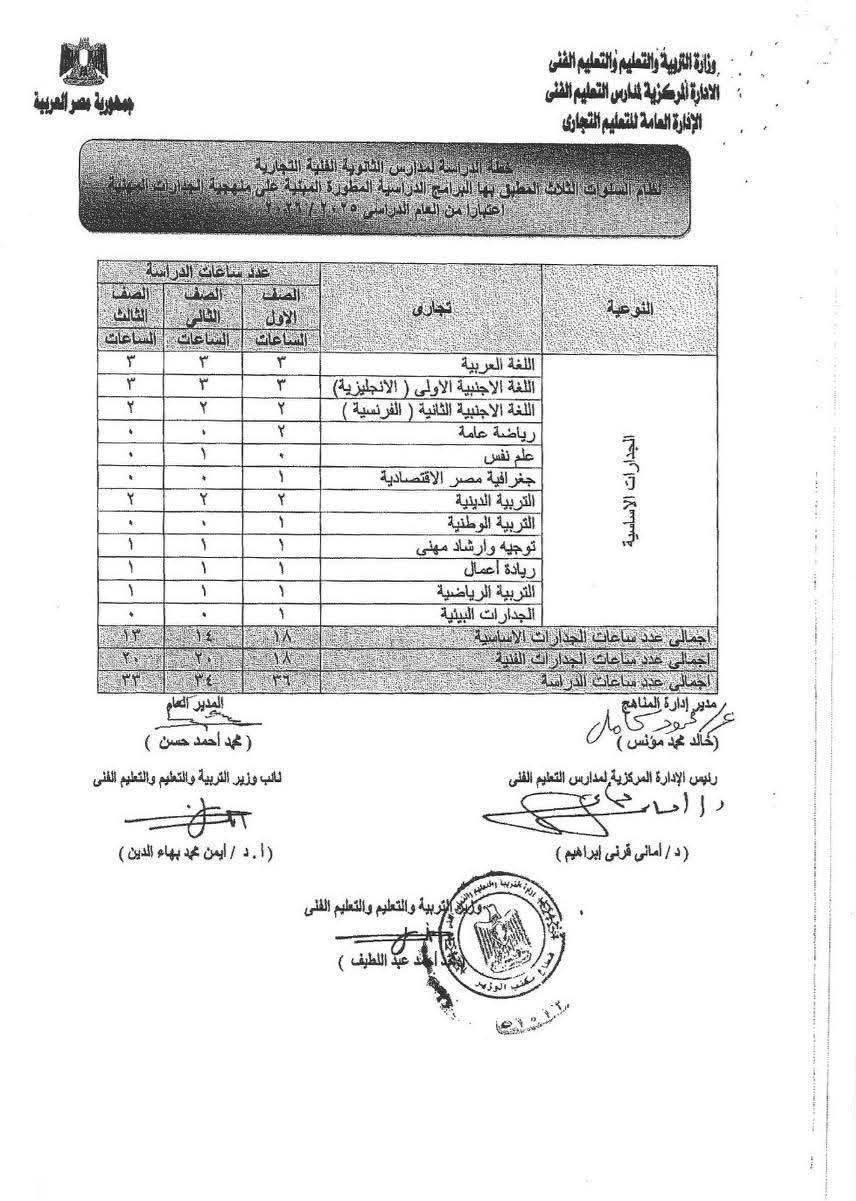 وزارة التربية والتعليم والتعليم الفنى
الادارة المركزية لمدارس التعليم الفنى
الإدارة العامة للتعليم التجارى
جمهورية مصر العربية
خطة الدراسة لمدارس الثانوية الفنية التجارية
نظام السنوات الثلاث المطبق بها البرامج الدراسية المطورة المبنية على منهجية الجدارات المهنية
اعتبارا من العام الدراسى ٢٠٢٥ / ٢٠٢٦
النوعية تجارى عدد ساعات الدراسة
الصف الاول الصف الثانى الصف الثالث
الساعات الساعات الساعات
الجدارات الاساسية
اللغة العربية ٣ ٣ ٣
اللغة الاجنبية الاولى ( الانجليزية) ٣ ٣ ٣
اللغة الاجنبية الثانية ( الفرنسية ) ٢ ٢ ٢
رياضة عامة ٢ ٠ ٠
علم نفس ٠ ١ ٠
جغرافية مصر الاقتصادية ١ ٠ ٠
التربية الدينية ٢ ٢ ٢
التربية الوطنية ١ ٠ ٠
توجيه وارشاد مهنى ١ ١ ١
ريادة أعمال ١ ١ ١
التربية الرياضية ١ ١ ١
الجدارات البيئية ١ ٠ ٠
اجمالى عدد ساعات الجدارات الاساسية ١٨ ١٤ ١٣
اجمالى عدد ساعات الجدارات الفنية ١٨ ٢٠ ٢٠
اجمالى عدد ساعات الدراسة ٣٦ ٣٤ ٣٣
مدير إدارة المناهج المدير العام
(خالد محمد مؤنس ) ( محمد أحمد حسن )
رئيس الإدارة المركزية لمدارس التعليم الفنى نائب وزير التربية والتعليم والتعليم الفنى
( د/ أمانى قرنى إبراهيم ) ( أ.د / أيمن محمد بهاء الدين )
وزير التربية والتعليم والتعليم الفنى
أحمد عبد اللطيف )
قطاع مكتب الوزير